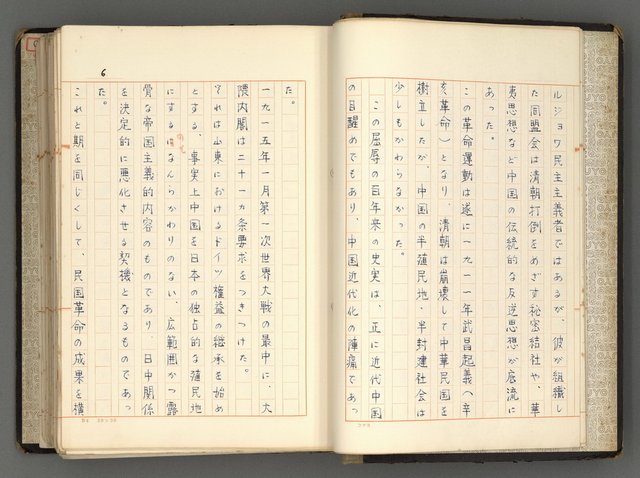 ルジョワ民主主義者ではあるが、彼が組織し
た同盟会は清朝打倒をめざす秘密結社や、華
夷思想など中国の伝統的な反逆思想が底流に
あった。
この革命運動は遂に一九一一年武昌起義（辛
亥革命）となり、清朝は崩壊して中華民国を
樹立したが、中国の半殖民地・半封建社会は
少しもかわらなかった。
この屈辱の百年来の史実は、正に近代中国
の目醒めでもあり、中国近代化の陣痛であっ
6
た。
一九一五年一月第一次世界大戦の最中に、大
隈内閣は二十一ヶ条要求をつきつけた。
それは山東におけるドイツ権益の継承を始め
とする、事実上中国を日本の独占的な殖民地
にするのとなんらかわりのない、広範囲かつ露
骨な帝国主義的内容のものであり、日中関係
を決定的に悪化させる契機となるものであっ
た。
これと期を同じくして、民国革命の成果を横